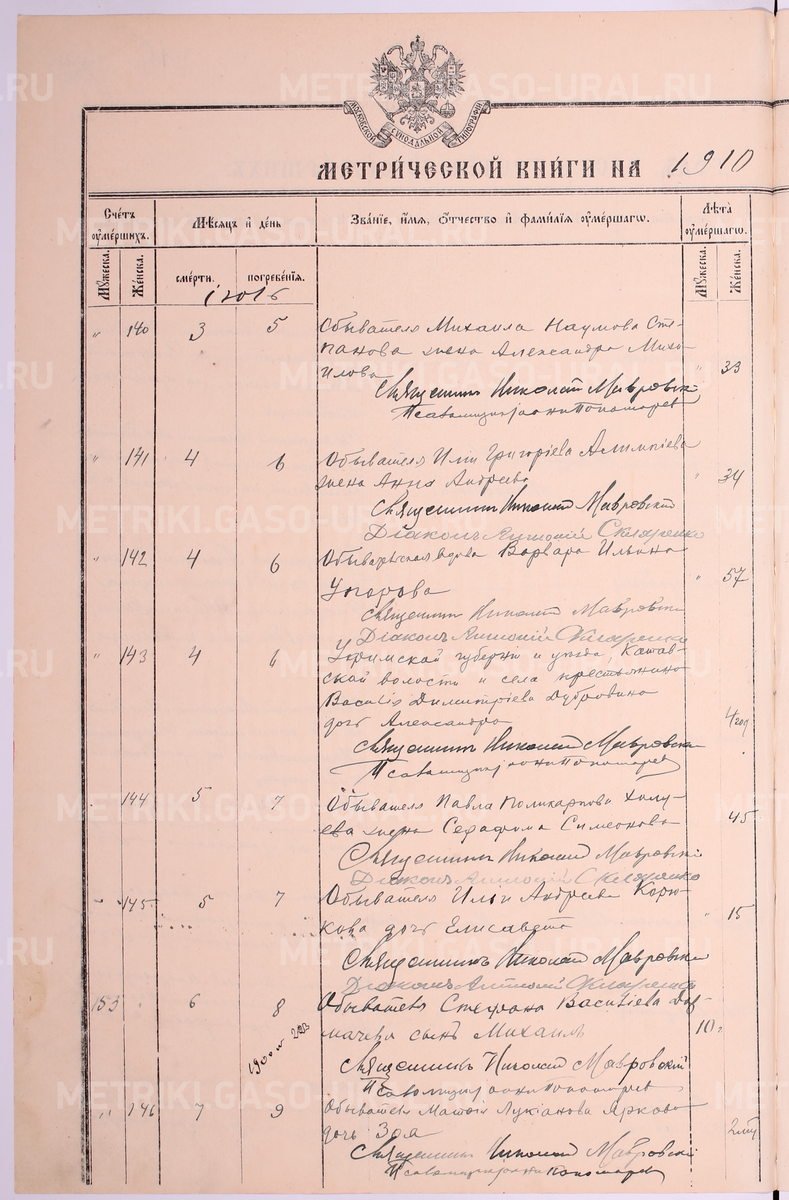 МОСКОВСКОЙ СИНОДАЛЬНОЙ ТИПОГРАФІИ
МЕТРИ́ЧЕСКОЙ КНИ́ГИ НА 1910
Сче́тъ оу҆ме́ршихъ.
Мѣ́сяцъ и҆ де́нь
Зва́нїе, и҆́мя, ѻ҆́тчество и҆ фами́лїя оу҆ме́ршагѡ.
Лѣ́та оу҆ме́ршагѡ.
Му́жеска. Же́нска.
сме́рти. погребе́нїя.
Му́жеска. Же́нска.
" 140 3 5 Обывателя Михаила Наумова Сте-
панова жена Александра Михаи-
лова " 33
Священникъ Николай Мавровскій
Псаломщикъ Пономаревъ
" 141 4 6 Обывателя Иліи Григоріева
жена Анна Андреева " 34
Священникъ Николай Мавровскій
Діаконъ Антоній Скляренко
" 142 4 6 Обывательская вдова Варвара Ильина
Упорова " 57
Священникъ Николай Мавровскій
Діаконъ Антоній Скляренко
" 143 4 6 Уфимской губерніи и уѣзда, Катав-
ской волости и села крестьянина
Василія Димитріева Дубровина
дочь Александра 4 год
Священникъ Николай Мавровскій
Псаломщикъ Пономаревъ
144 5 7 Обывателя Павла Поликарпова
жена Серафима Симеонова 45
Священникъ Николай Мавровскій
Діаконъ Антоній Скляренко
145 5 7 Обывателя Ильи Андреева Корю-
кова дочь Елисавета " 15
Священникъ Николай Мавровскій
Діаконъ Антоній Скляренко
153 " 6 8 Обывателя Стефана Василіева
сынъ Михаилъ 10
Священникъ Николай Мавровскій
Псаломщикъ Пономаревъ
" 146 7 9 Обывателя Матѳія Лукіанова Яркова
дочь Зоя
Священникъ Николай Мавровскій
Псаломщикъ Пономаревъ
METRIKI.GASO-URAL.RU